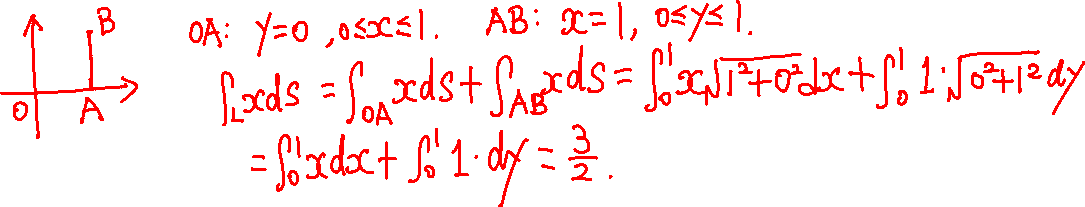 B
O A
OA: y=0, 0≤x≤1. AB: x=1, 0≤y≤1.
∫_L xds = ∫_{OA} xds + ∫_{AB} xds = ∫_0^1 x√(1²+0²) dx + ∫_0^1 1·√(0²+1²) dy
= ∫_0^1 xdx + ∫_0^1 1·dy = 3/2.